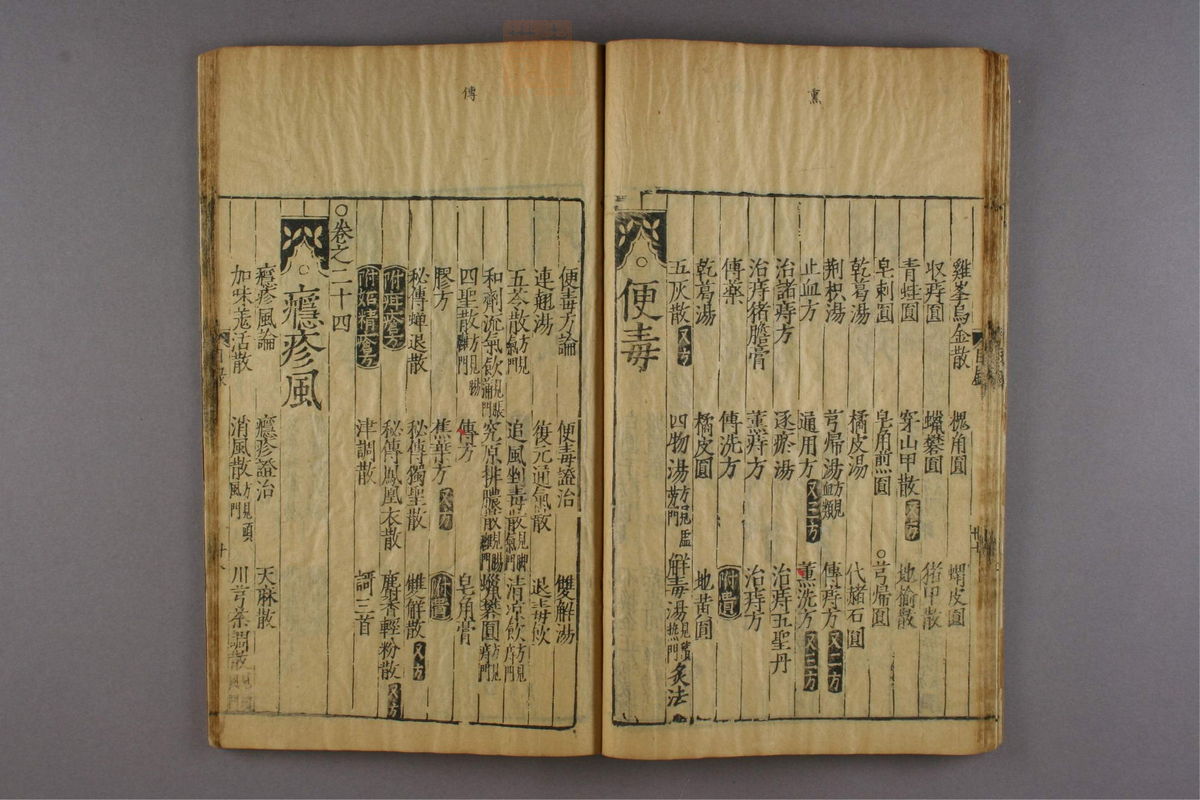 熏
雞峯烏金散 槐角圓 蝟皮圓
収痔圓 蠟礬圓 猪甲散
青蛙圓 穿山甲散 又方 地榆散
皂刺圓 皂角煎圓 ○芎歸圓
乾葛湯 橘皮湯 代赭石圓
荆枳湯 芎歸湯 方見血類 傅痔方 又二方
止血方 通用方 又三方 熏洗方 又三方
治諸痔方 逐瘀湯 治痔五聖丹
治痔猪膽膏 熏痔方 治痔方
傅藥 傅洗方 附遺
乾葛湯 橘皮圓 地黃圓
五灰散 又方 四物湯 解毒湯 灸法
○便毒
傅
便毒方論 便毒證治 雙解湯
連翹湯 復元通氣散 退毒飲
五苓散 方見 追風剉毒散 清凉飲 方見
和劑流氣飲 究原排膿散 蠟礬圓 方見
四聖散 方見 傅方 皂角膏
膠方 蕉葉方 又方 附遺
秘傳蟬退散 秘傳獨聖散 雙解散 又方
附疳瘡方 秘傳鳳凰衣散 麝香輕粉散 又方
附妬精瘡方 津調散 謌三首
○卷之二十四
○癮疹風
癮疹風論 癮疹證治 天麻散
加味羗活散 消風散 方見頭風門 川芎茶調散